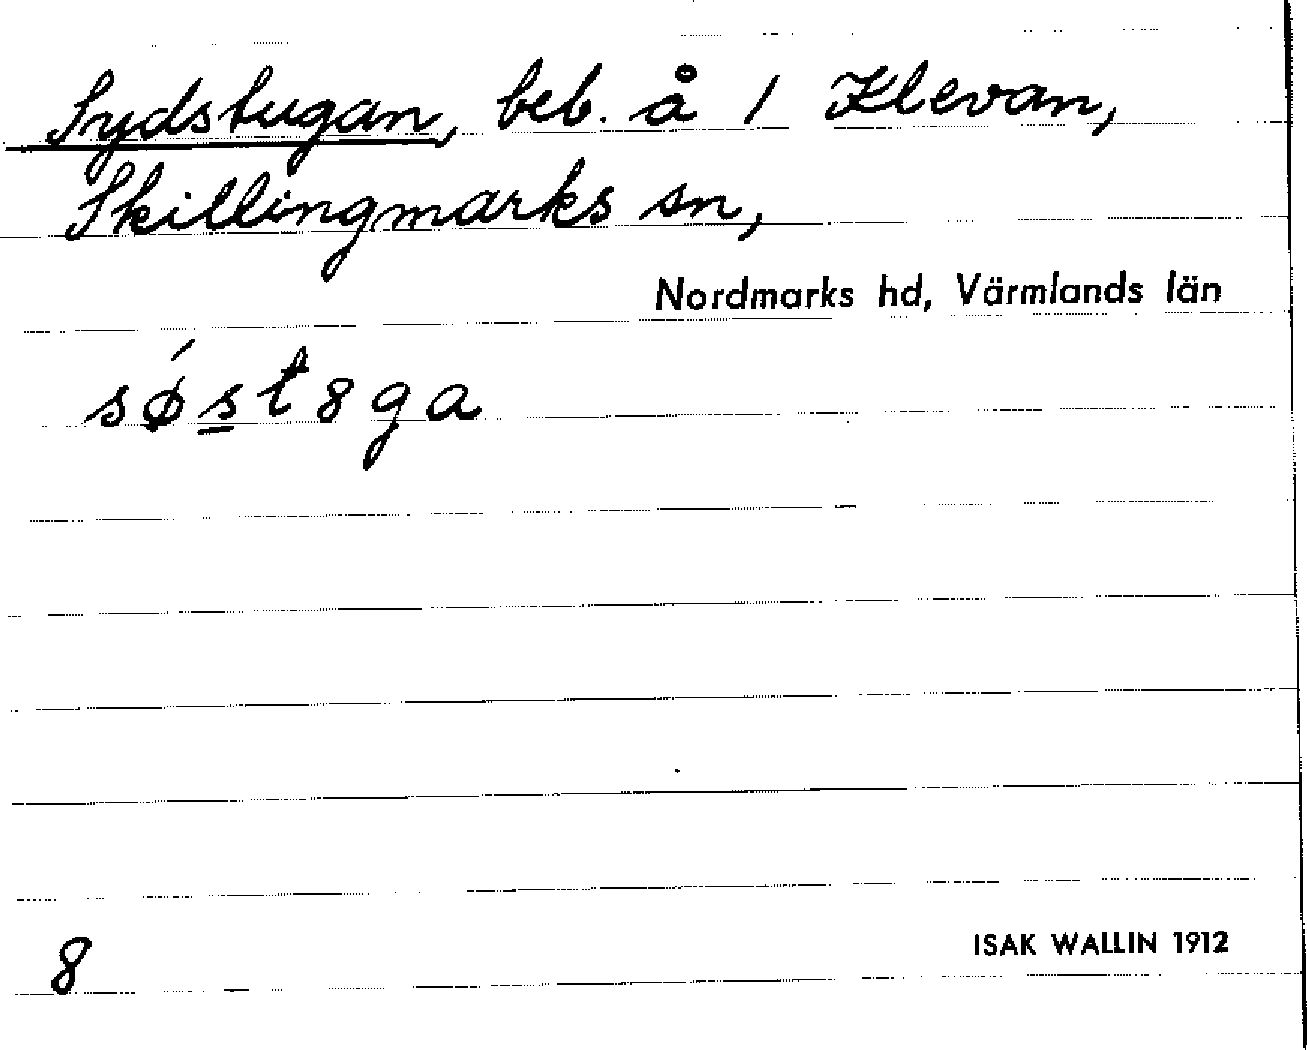 Sydstugan, beb. å 1 Klevan,
Skillingmarks sn,
Nordmarks hd, Värmlands län
sǿst8ga
8
ISAK WALLIN 1912